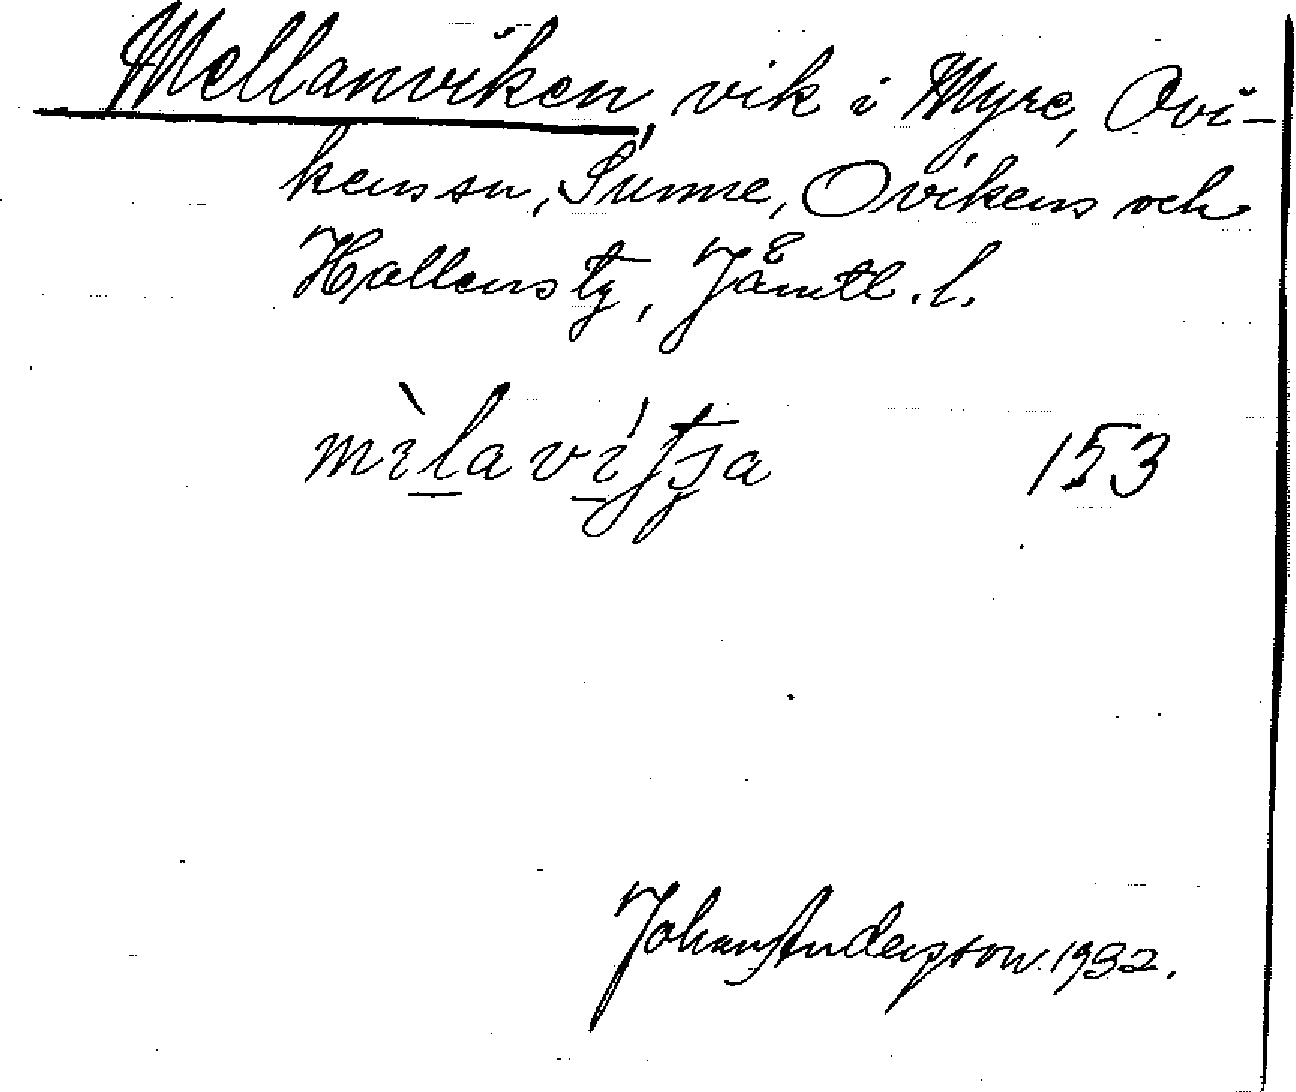 Mellanviken, vik i Myre, Ovi-
kens sn, Sunne, Ovikens och
Hallens tg, Jämtl. l.
mìlavítʃa 153
Johan Anderson 1932.